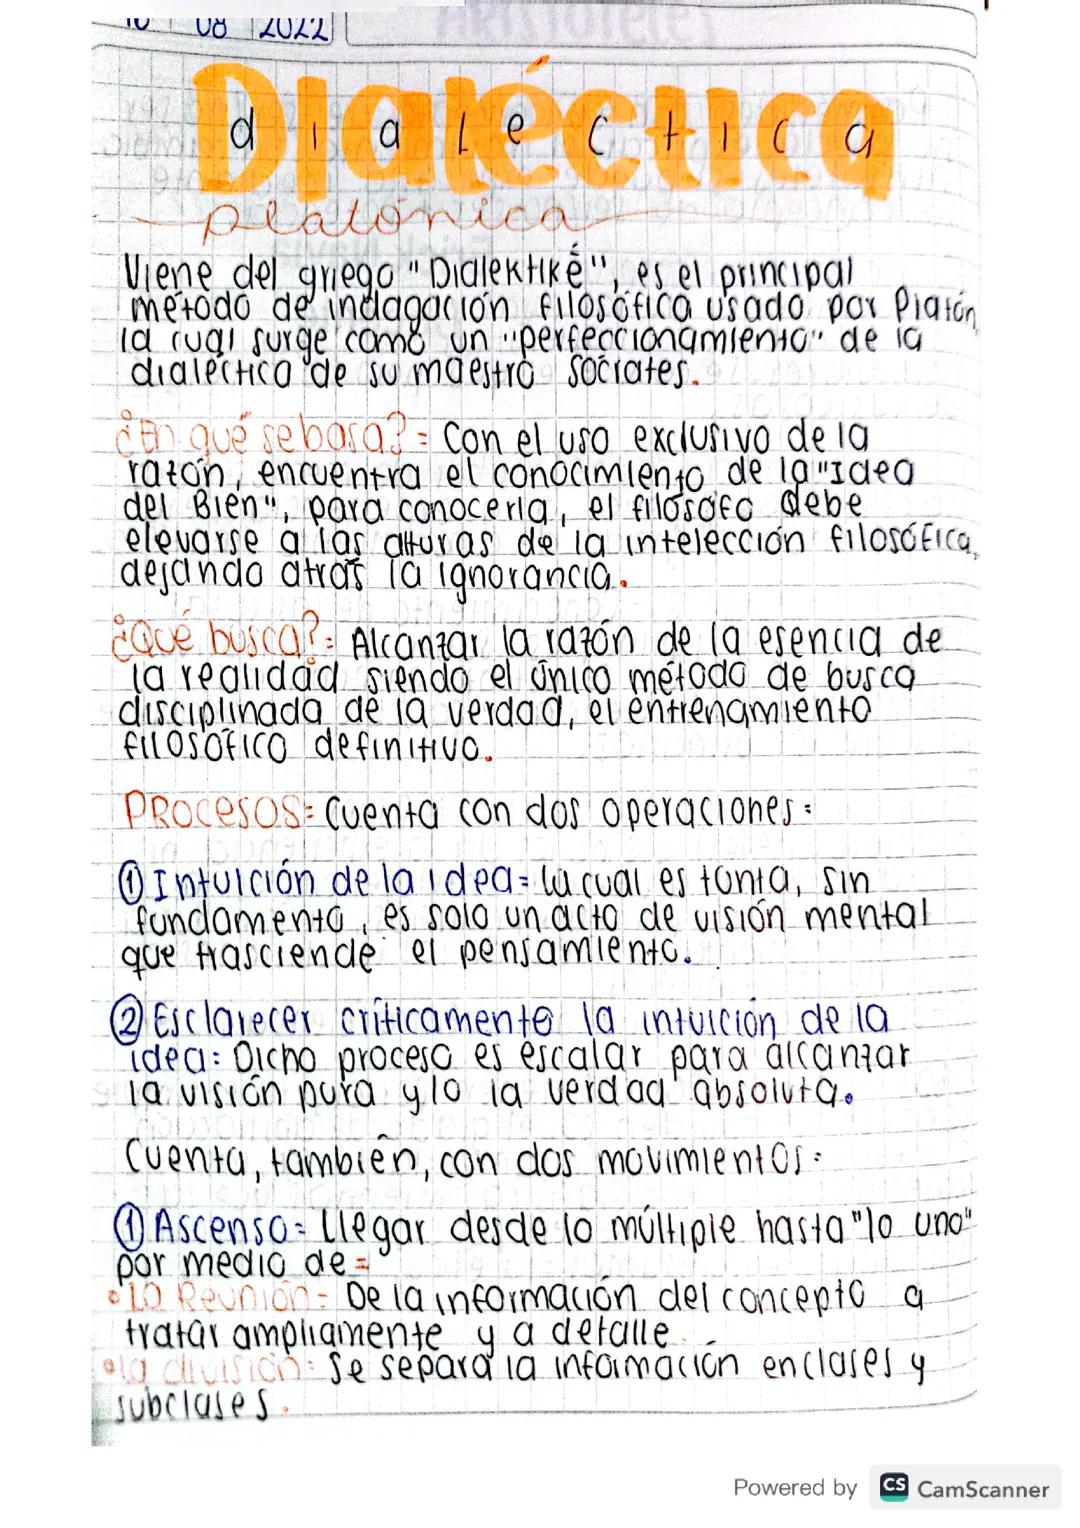 10 08 2022
Dialéctica
d i a l e c t i c a
platónica
Viene del griego "Dialektiké", es el principal
método de indagación filosófica usado por Platón,
la cual surge como un "perfeccionamiento" de la
dialéctica de su maestro Sócrates.
¿En qué se basa?: Con el uso exclusivo de la
razón, encuentra el conocimiento de la "Idea
del Bien", para conocerla, el filósofo debe
elevarse a las alturas de la intelección filosófica,
dejando atrás la ignorancia.
¿Qué busca?: Alcanzar la razón de la esencia de
la realidad siendo el único método de busca
disciplinada de la verdad, el entrenamiento
filosófico definitivo.
PROCESOS: Cuenta con dos operaciones:
① Intuición de la idea: La cual es tonta, sin
fundamento, es solo un acto de visión mental
que trasciende el pensamiento.
② Esclarecer críticamente la intuición de la
idea: Dicho proceso es escalar para alcanzar
la visión pura y/o la verdad absoluta.
Cuenta, también, con dos movimientos:
① Ascenso: Llegar desde lo múltiple hasta "lo uno"
por medio de:
• La Reunión: De la información del concepto a
tratar ampliamente y a detalle.
• la división: Se separa la información en clases y
subclases.
Powered by CS CamScanner